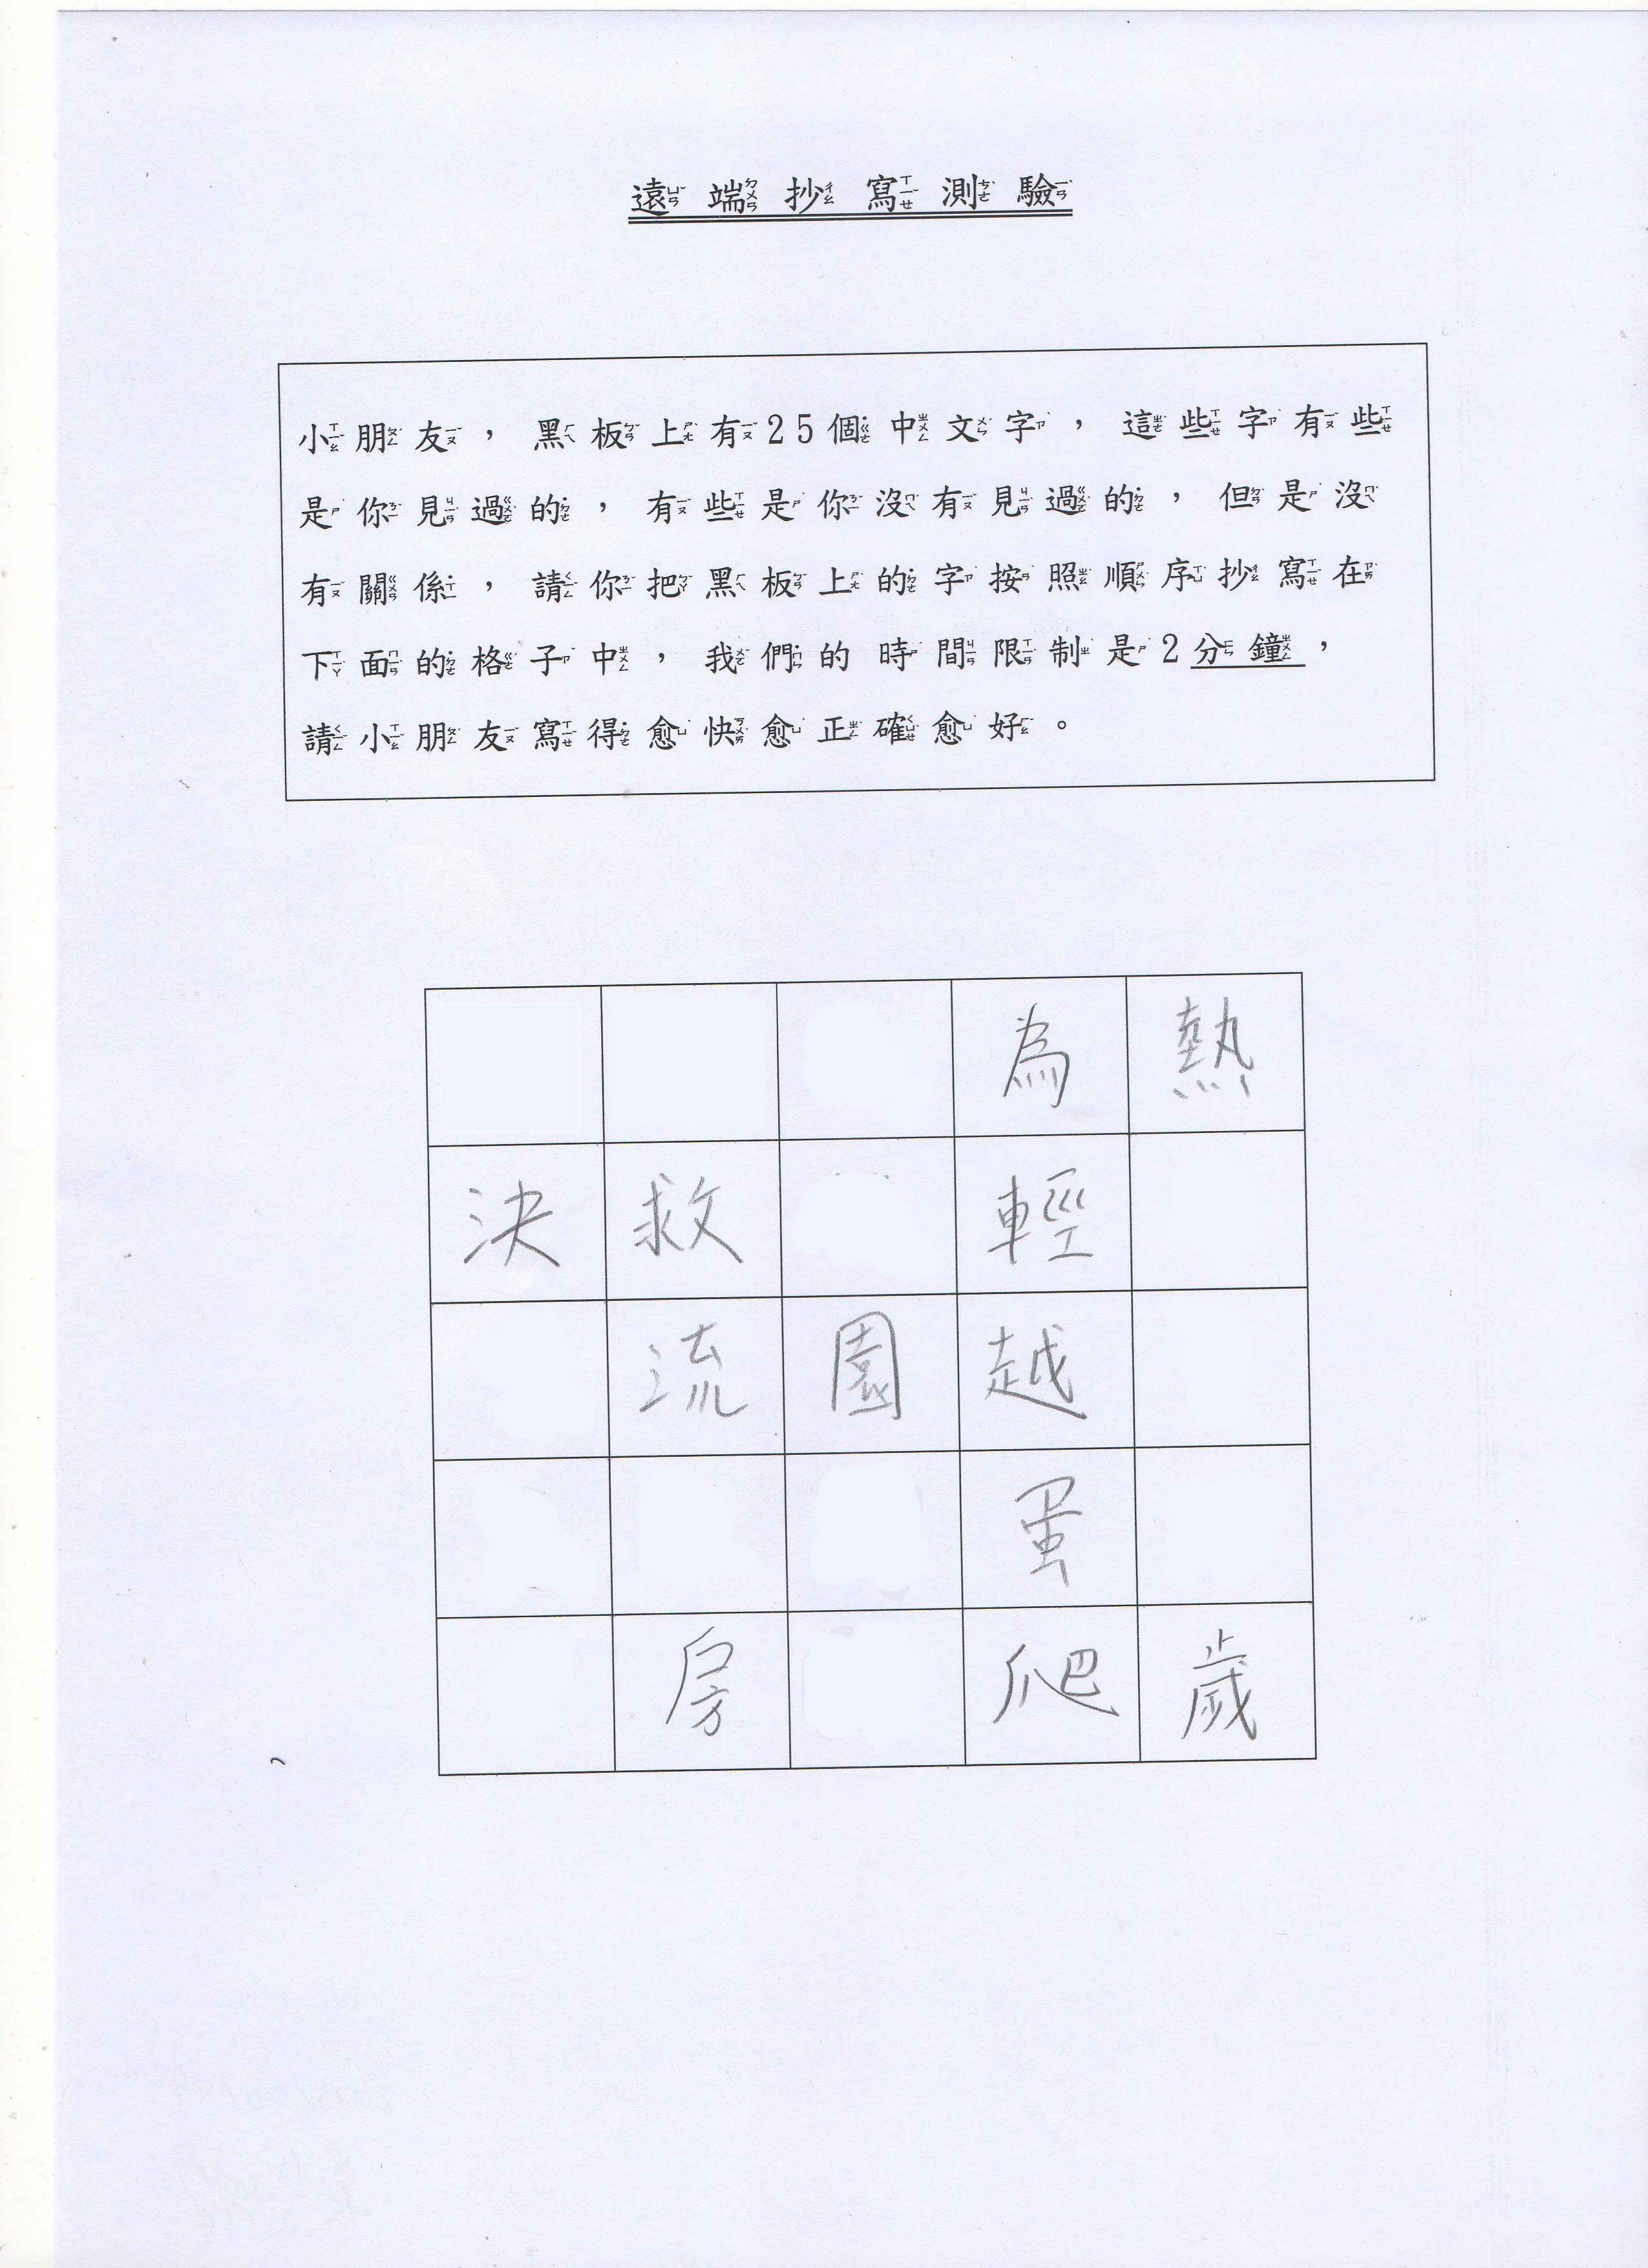 遠端抄寫測驗
小朋友，黑板上有25個中文字，這些字有些
是你見過的，有些是你沒有見過的，但是沒
有關係，請你把黑板上的字按照順序抄寫在
下面的格子中，我們的時間限制是2分鐘，
請小朋友寫得愈快愈正確愈好。
為 熱
決 救 輕
流 園 越
蛋
房 爬 歲